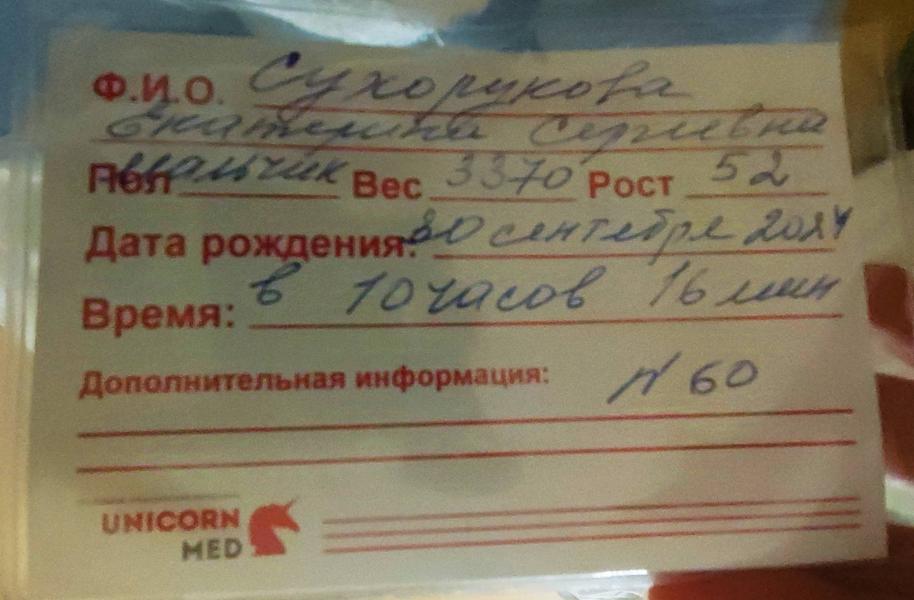 Ф.И.О. Сухорукова
Екатерина Сергиевна
Пол мальчик Вес 3370 Рост 52
Дата рождения: 30 сентября 2024
Время: в 10 часов 16 мин
Дополнительная информация: N 60
UNICORN
MED